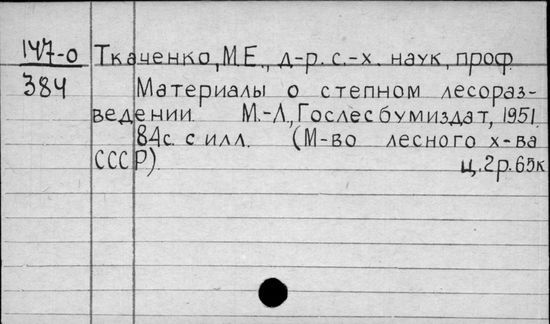 147-о Ткаченко, М.Е., д-р. с.-х. наук, проф.
384 Материалы о степном лесораз-
ведении. М.-Л., Гослесбумиздат, 1951.
84с. с илл. (М-во лесного х-ва
СССР). ц. 2р. 65к